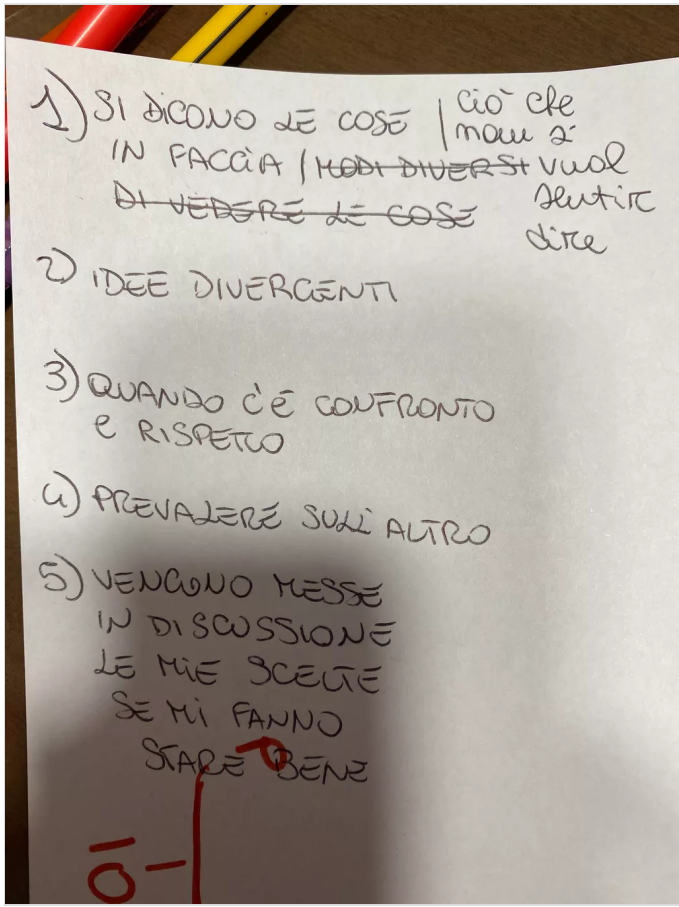 1) SI DICONO LE COSE / Ciò che
IN FACCIA / MODI DIVERSI non si vuol
DI VEDERE LE COSE sentir
dire
2) IDEE DIVERGENTI
3) QUANDO C'È CONFRONTO
E RISPETTO
4) PREVALERE SULL'ALTRO
5) VENGONO MESSE
IN DISCUSSIONE
LE MIE SCELTE
SE MI FANNO
STARE BENE